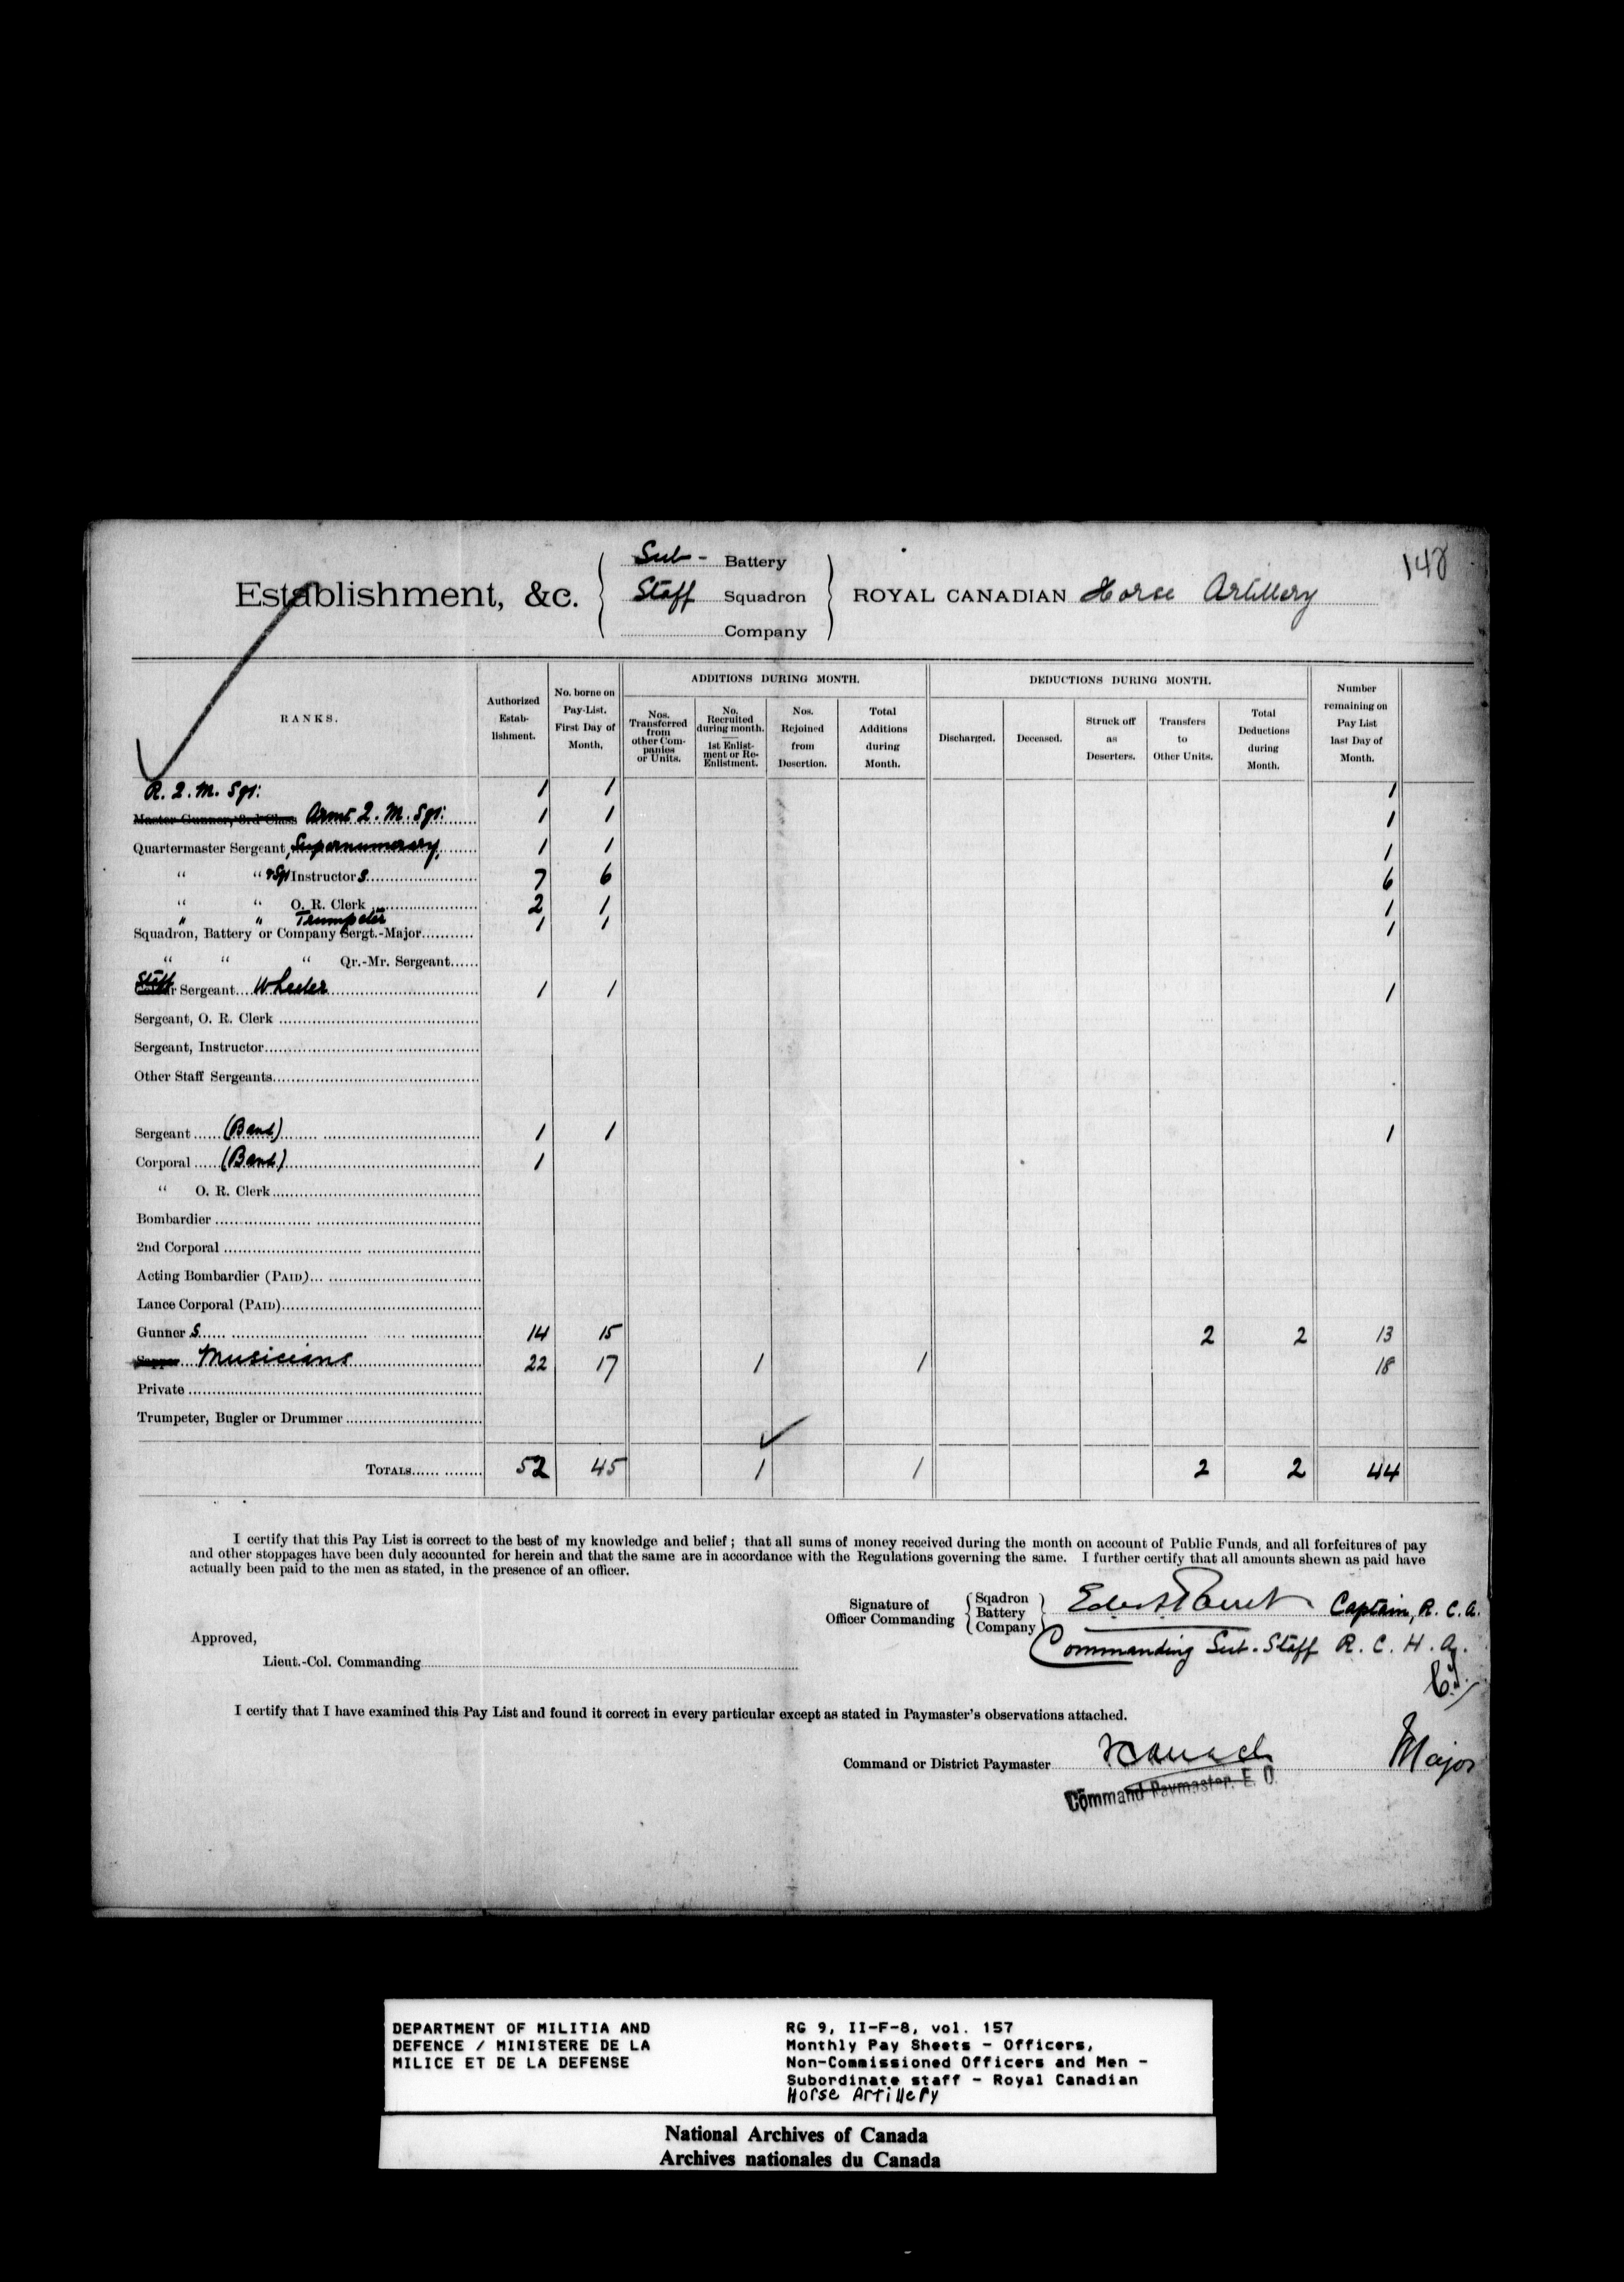 148
Sub- Battery
Establishment, &c. Staff Squadron ROYAL CANADIAN Horse Artillery
Company
RANKS. Authorized Establishment. No. borne on Pay-List, First Day of Month, ADDITIONS DURING MONTH. DEDUCTIONS DURING MONTH. Number remaining on Pay List last Day of Month.
Nos. Transferred from other Companies or Units. No. Recruited during month. 1st Enlistment or Re-Enlistment. Nos. Rejoined from Desertion. Total Additions during Month. Discharged. Deceased. Struck off as Deserters. Transfers to Other Units. Total Deductions during Month.
R. Q. M. Sgt: 1 1 1
Master Gunner, 3rd Class Armt Q. M. Sgt: 1 1 1
Quartermaster Sergeant, Supernumerary, 1 1 1
" " & Sgt Instructors 7 6 6
" " O. R. Clerk 2 1 1
" " Trumpeter 1 1 1
Squadron, Battery or Company Sergt.-Major
" " " Qr.-Mr. Sergeant
Staff Sergeant Wheeler 1 1 1
Sergeant, O. R. Clerk
Sergeant, Instructor
Other Staff Sergeants
Sergeant (Band) 1 1 1
Corporal (Band) 1
" O. R. Clerk
Bombardier
2nd Corporal
Acting Bombardier (PAID)
Lance Corporal (PAID)
Gunner s 14 15 2 2 13
Sapper Musicians 22 17 1 1 18
Private
Trumpeter, Bugler or Drummer
TOTALS 52 45 1 1 2 2 44
I certify that this Pay List is correct to the best of my knowledge and belief; that all sums of money received during the month on account of Public Funds, and all forfeitures of pay
and other stoppages have been duly accounted for herein and that the same are in accordance with the Regulations governing the same. I further certify that all amounts shewn as paid have
actually been paid to the men as stated, in the presence of an officer.
Signature of Officer Commanding Sqadron Battery Company Captain, R. C. A.
Commanding Sub-Staff R. C. H. A.
Approved,
Lieut.-Col. Commanding
I certify that I have examined this Pay List and found it correct in every particular except as stated in Paymaster's observations attached.
Command or District Paymaster Major
Command Paymaster. E. O.
DEPARTMENT OF MILITIA AND
DEFENCE / MINISTERE DE LA
MILICE ET DE LA DEFENSE
RG 9, II-F-8, vol. 157
Monthly Pay Sheets - Officers,
Non-Commissioned Officers and Men -
Subordinate staff - Royal Canadian
Horse Artillery
National Archives of Canada
Archives nationales du Canada